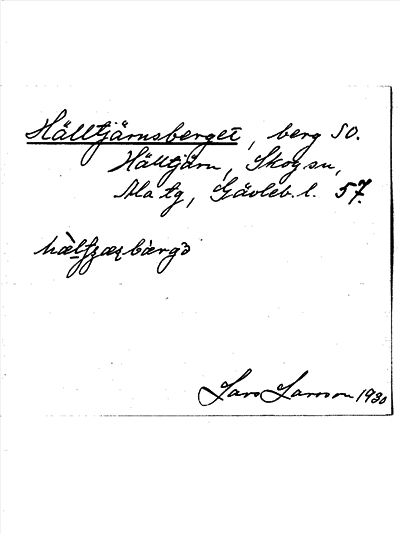 Hälltjärnsberget, berg SO.
Hälltjärn, Skog sn,
Ala tg, Gävleb. l. 57.
Lars Larsson 1930